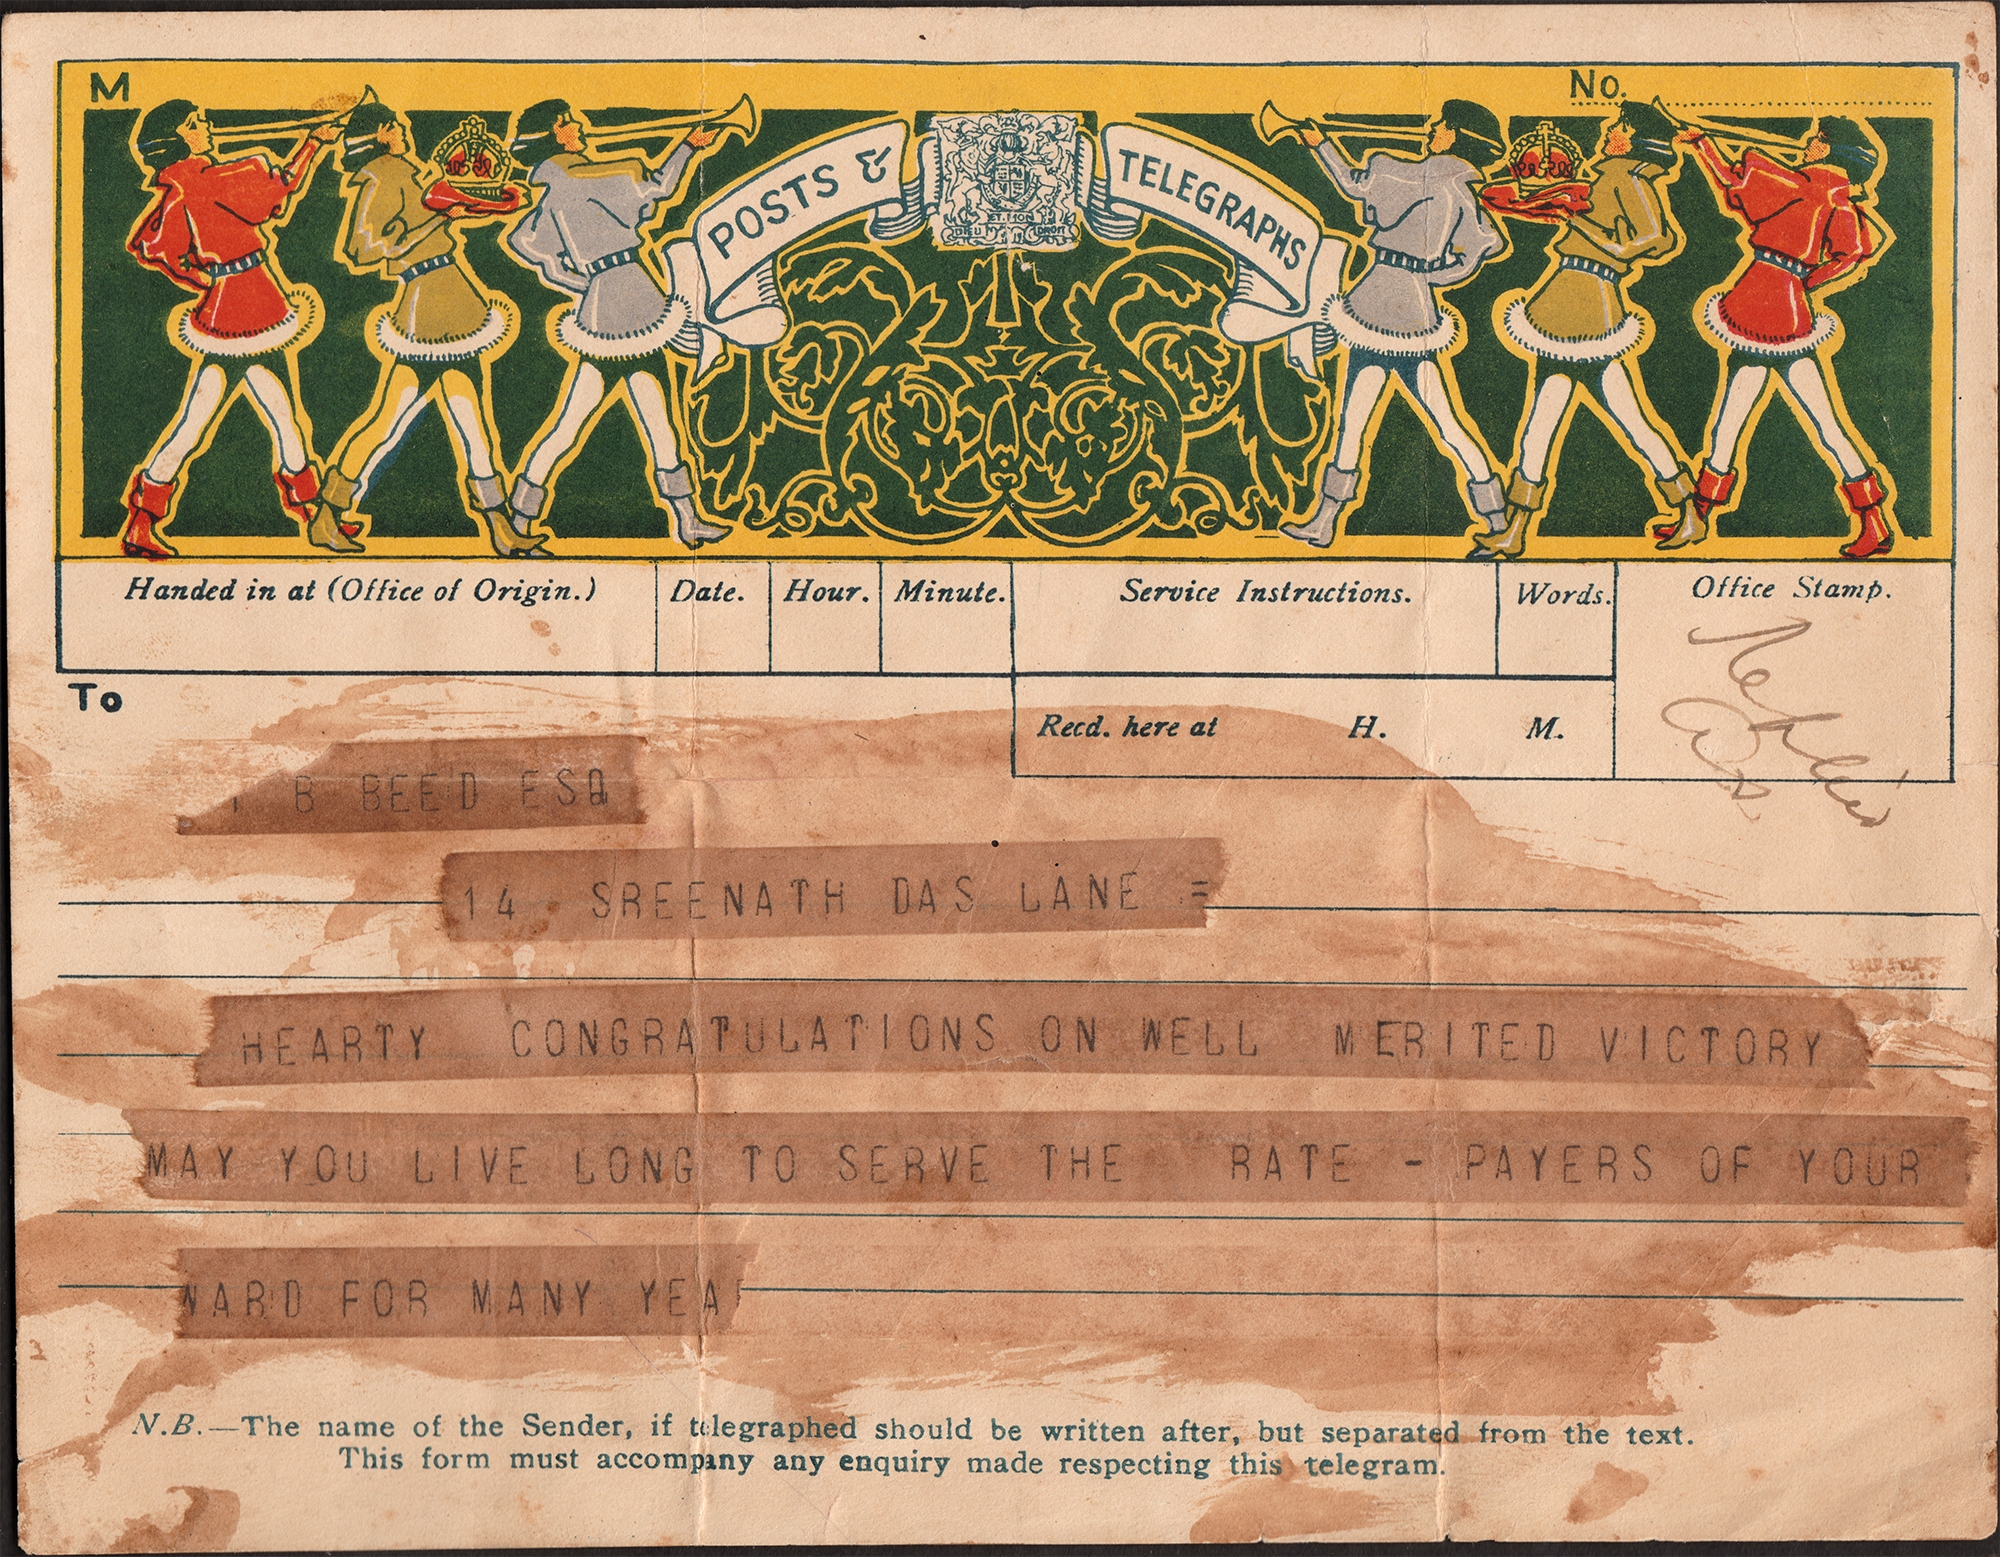 M
No.
POSTS & TELEGRAPHS
DIEU ET MON DROIT
Handed in at (Office of Origin.) Date. Hour. Minute. Service Instructions. Words. Office Stamp.
To
Recd. here at H. M.
B BEED ESQ
14 SREENATH DAS LANE =
HEARTY CONGRATULATIONS ON WELL MERITED VICTORY
MAY YOU LIVE LONG TO SERVE THE RATE - PAYERS OF YOUR
WARD FOR MANY YEA
N.B.—The name of the Sender, if telegraphed should be written after, but separated from the text.
This form must accompany any enquiry made respecting this telegram.